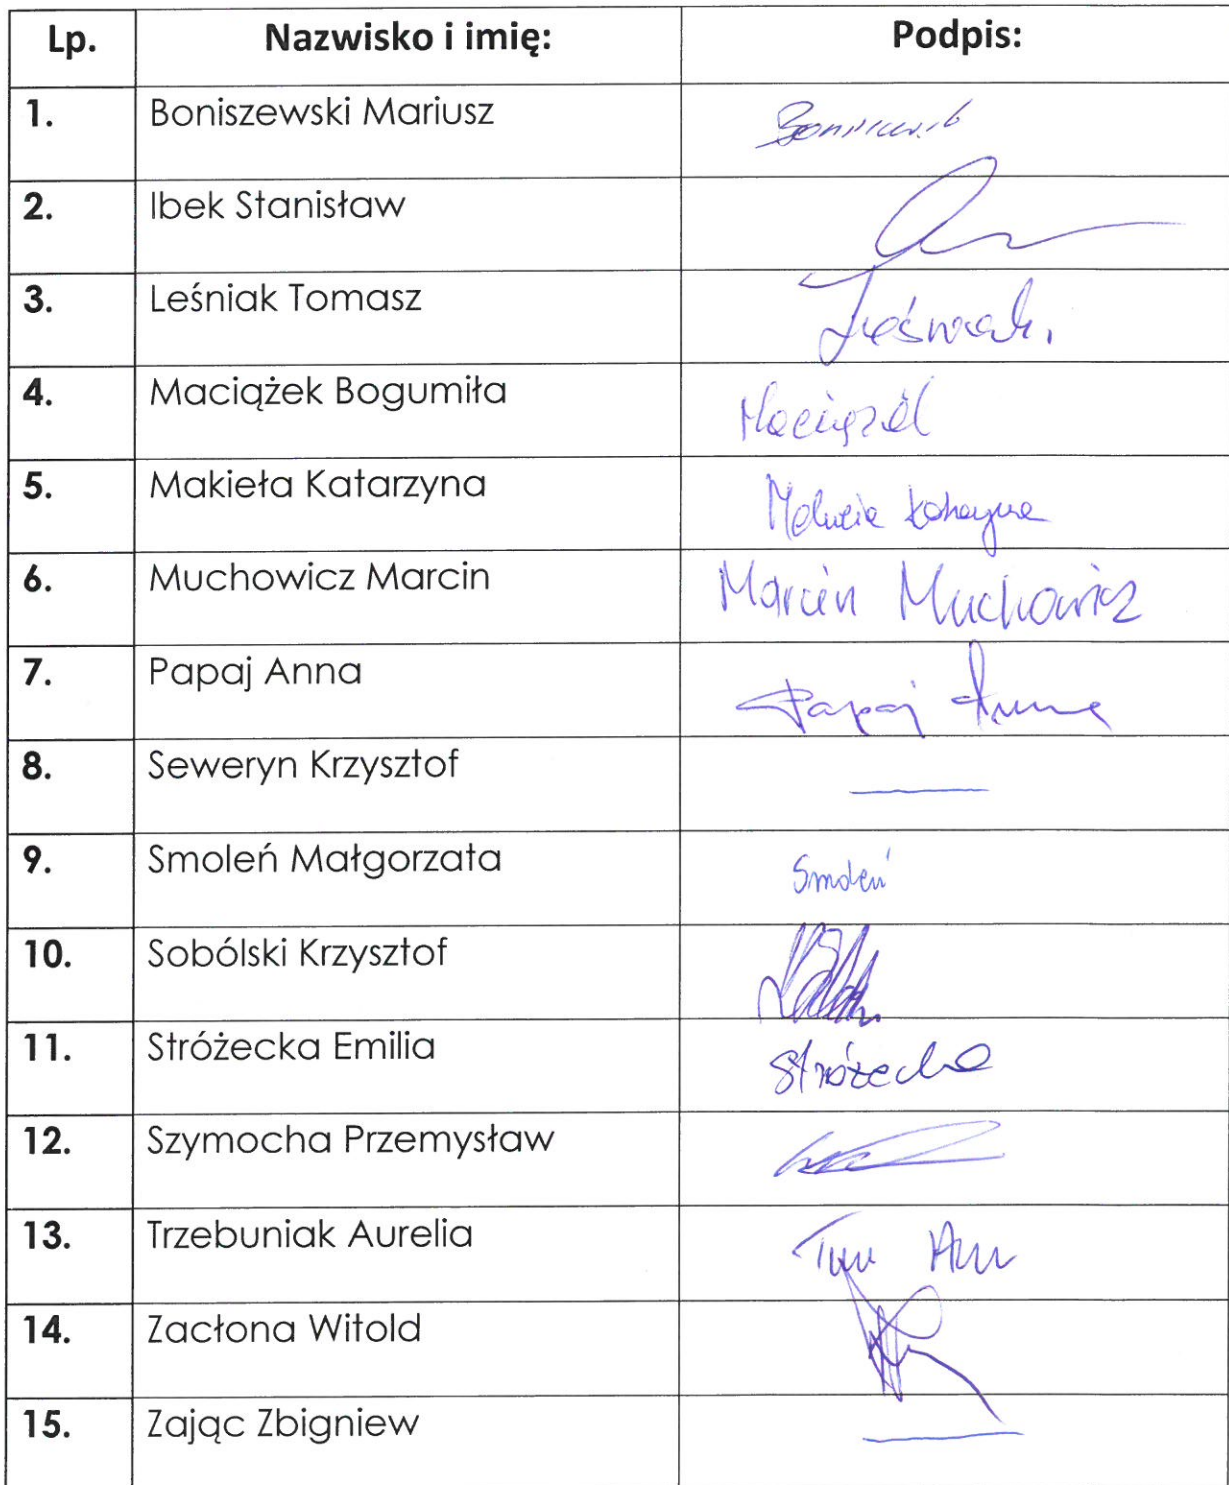 Lp. Nazwisko i imię: Podpis:
1. Boniszewski Mariusz
2. Ibek Stanisław
3. Leśniak Tomasz Leśniak.
4. Maciążek Bogumiła Maciążek
5. Makieła Katarzyna Makieła Katarzyna
6. Muchowicz Marcin Marcin Muchowicz
7. Papaj Anna Papaj Anna
8. Seweryn Krzysztof
9. Smoleń Małgorzata Smoleń
10. Sobólski Krzysztof
11. Stróżecka Emilia Stróżecka
12. Szymocha Przemysław
13. Trzebuniak Aurelia
14. Zacłona Witold
15. Zając Zbigniew